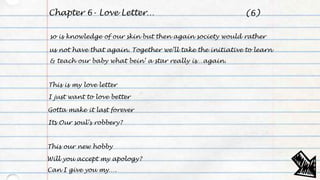 Chapter 6- Love Letter... (6)
so is knowledge of our skin but then again society would rather
us not have that again. Together we'll take the initiative to learn
& teach our baby what bein' a star really is...again.
This is my love letter
I just want to love better
Gotta make it last forever
Its Our soul's robbery?
This our new hobby
Will you accept my apology?
Can I give you my....